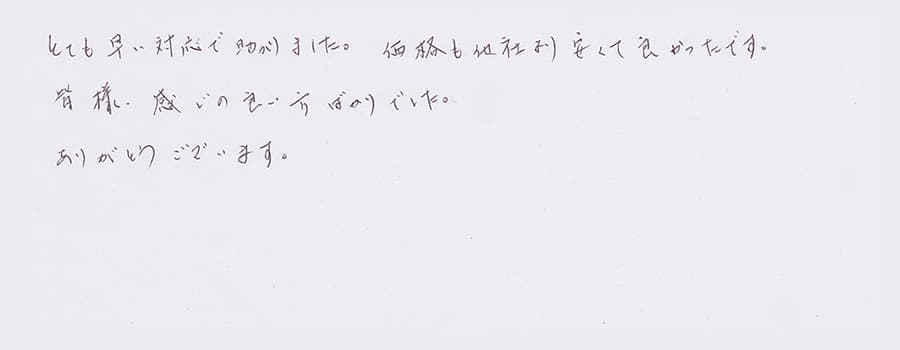 とても早い対応で助かりました。 価格も他社より安くて良かったです。
皆様、感じの良い方ばかりでした。
ありがとうございます。